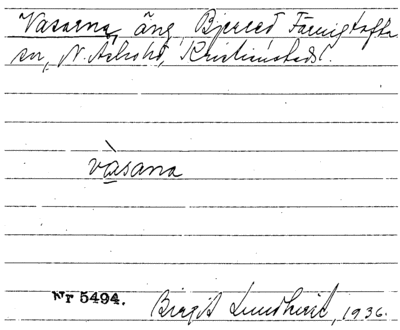 Vasarna, äng, Bjered, Färingtofta
sn, N. Åsbohd, Kristianstadsl.
vàsana
Nr 5494.
Birgit Lundkvist, 1936.